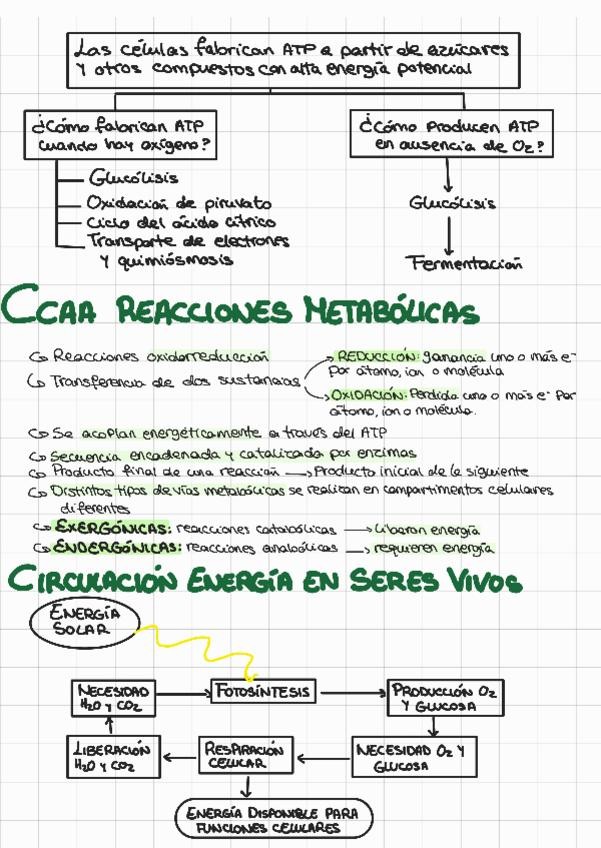 Las células fabrican ATP a partir de azúcares
y otros compuestos con alta energía potencial
¿Cómo fabrican ATP
cuando hay oxígeno?
Glucólisis
Oxidación de piruvato
Ciclo del ácido cítrico
Transporte de electrones
y quimiósmosis
¿Cómo producen ATP
en ausencia de O₂?
Glucólisis
Fermentación
CCAA REACCIONES METABÓLICAS
Reacciones oxidorreducción
Transferencia de dos sustancias
REDUCCIÓN: ganancia uno o más e⁻
por átomo, ion o molécula
OXIDACIÓN: Perdida uno o más e⁻ por
átomo, ion o molécula.
Se acoplan energéticamente a través del ATP
Secuencia encadenada y catalizada por enzimas
Producto final de una reacción → Producto inicial de la siguiente
Distintos tipos de vías metabólicas se realizan en compartimentos celulares
diferentes
EXERGÓNICAS: reacciones catabólicas → liberan energía
ENDERGÓNICAS: reacciones anabólicas → requieren energía
CIRCULACIÓN ENERGÍA EN SERES VIVOS
ENERGÍA
SOLAR
NECESIDAD
H₂O y CO₂
FOTOSÍNTESIS
PRODUCCIÓN O₂
Y GLUCOSA
LIBERACIÓN
H₂O y CO₂
RESPIRACIÓN
CELULAR
NECESIDAD O₂ Y
GLUCOSA
ENERGÍA DISPONIBLE PARA
FUNCIONES CELULARES